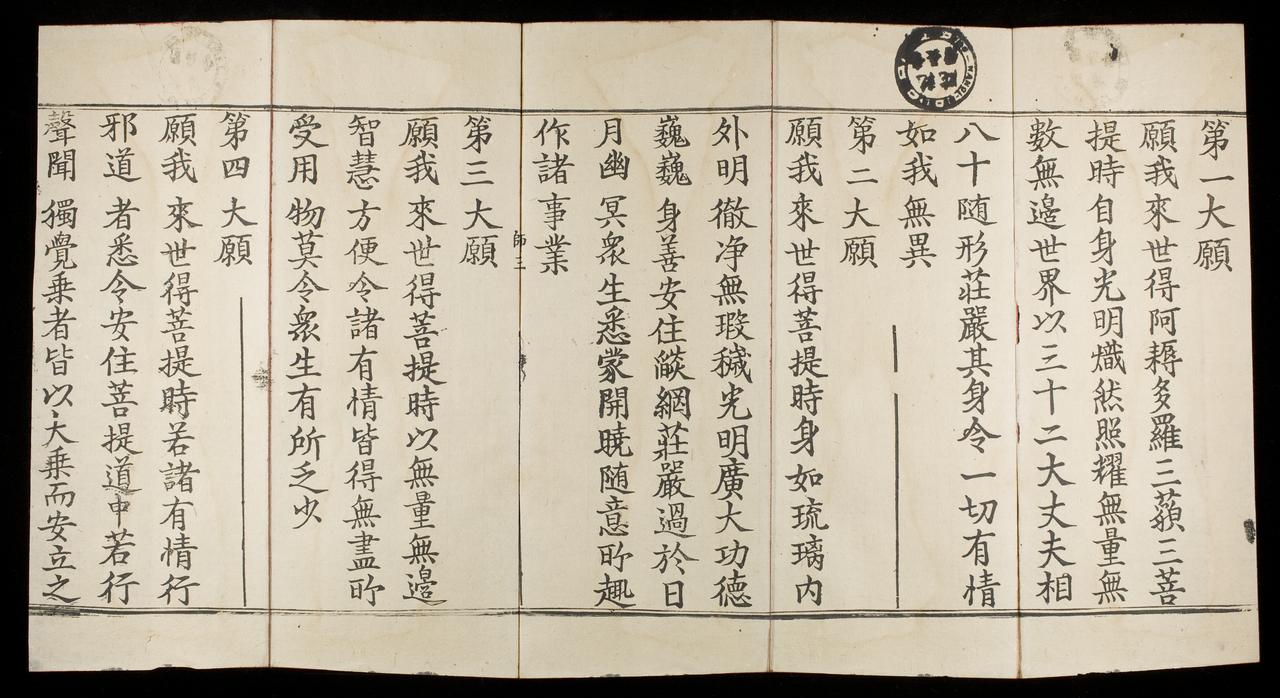 第一大願
願我來世得阿耨多羅三藐三菩
提時自身光明熾然照耀無量無
數無邊世界以三十二大丈夫相
八十随形莊嚴其身令一切有情
如我無異
第二大願
願我來世得菩提時身如琉璃内
外明徹净無瑕穢光明廣大功德
巍巍身善安住燄網莊嚴過於日
月幽冥衆生悉蒙開曉随意所趣
作諸事業
師三
第三大願
願我來世得菩提時以無量無邊
智慧方便令諸有情皆得無盡所
受用物莫令衆生有所乏少
第四大願
願我來世得菩提時若諸有情行
邪道者悉令安住菩提道中若行
聲聞獨覺乗者皆以大乗而安立之